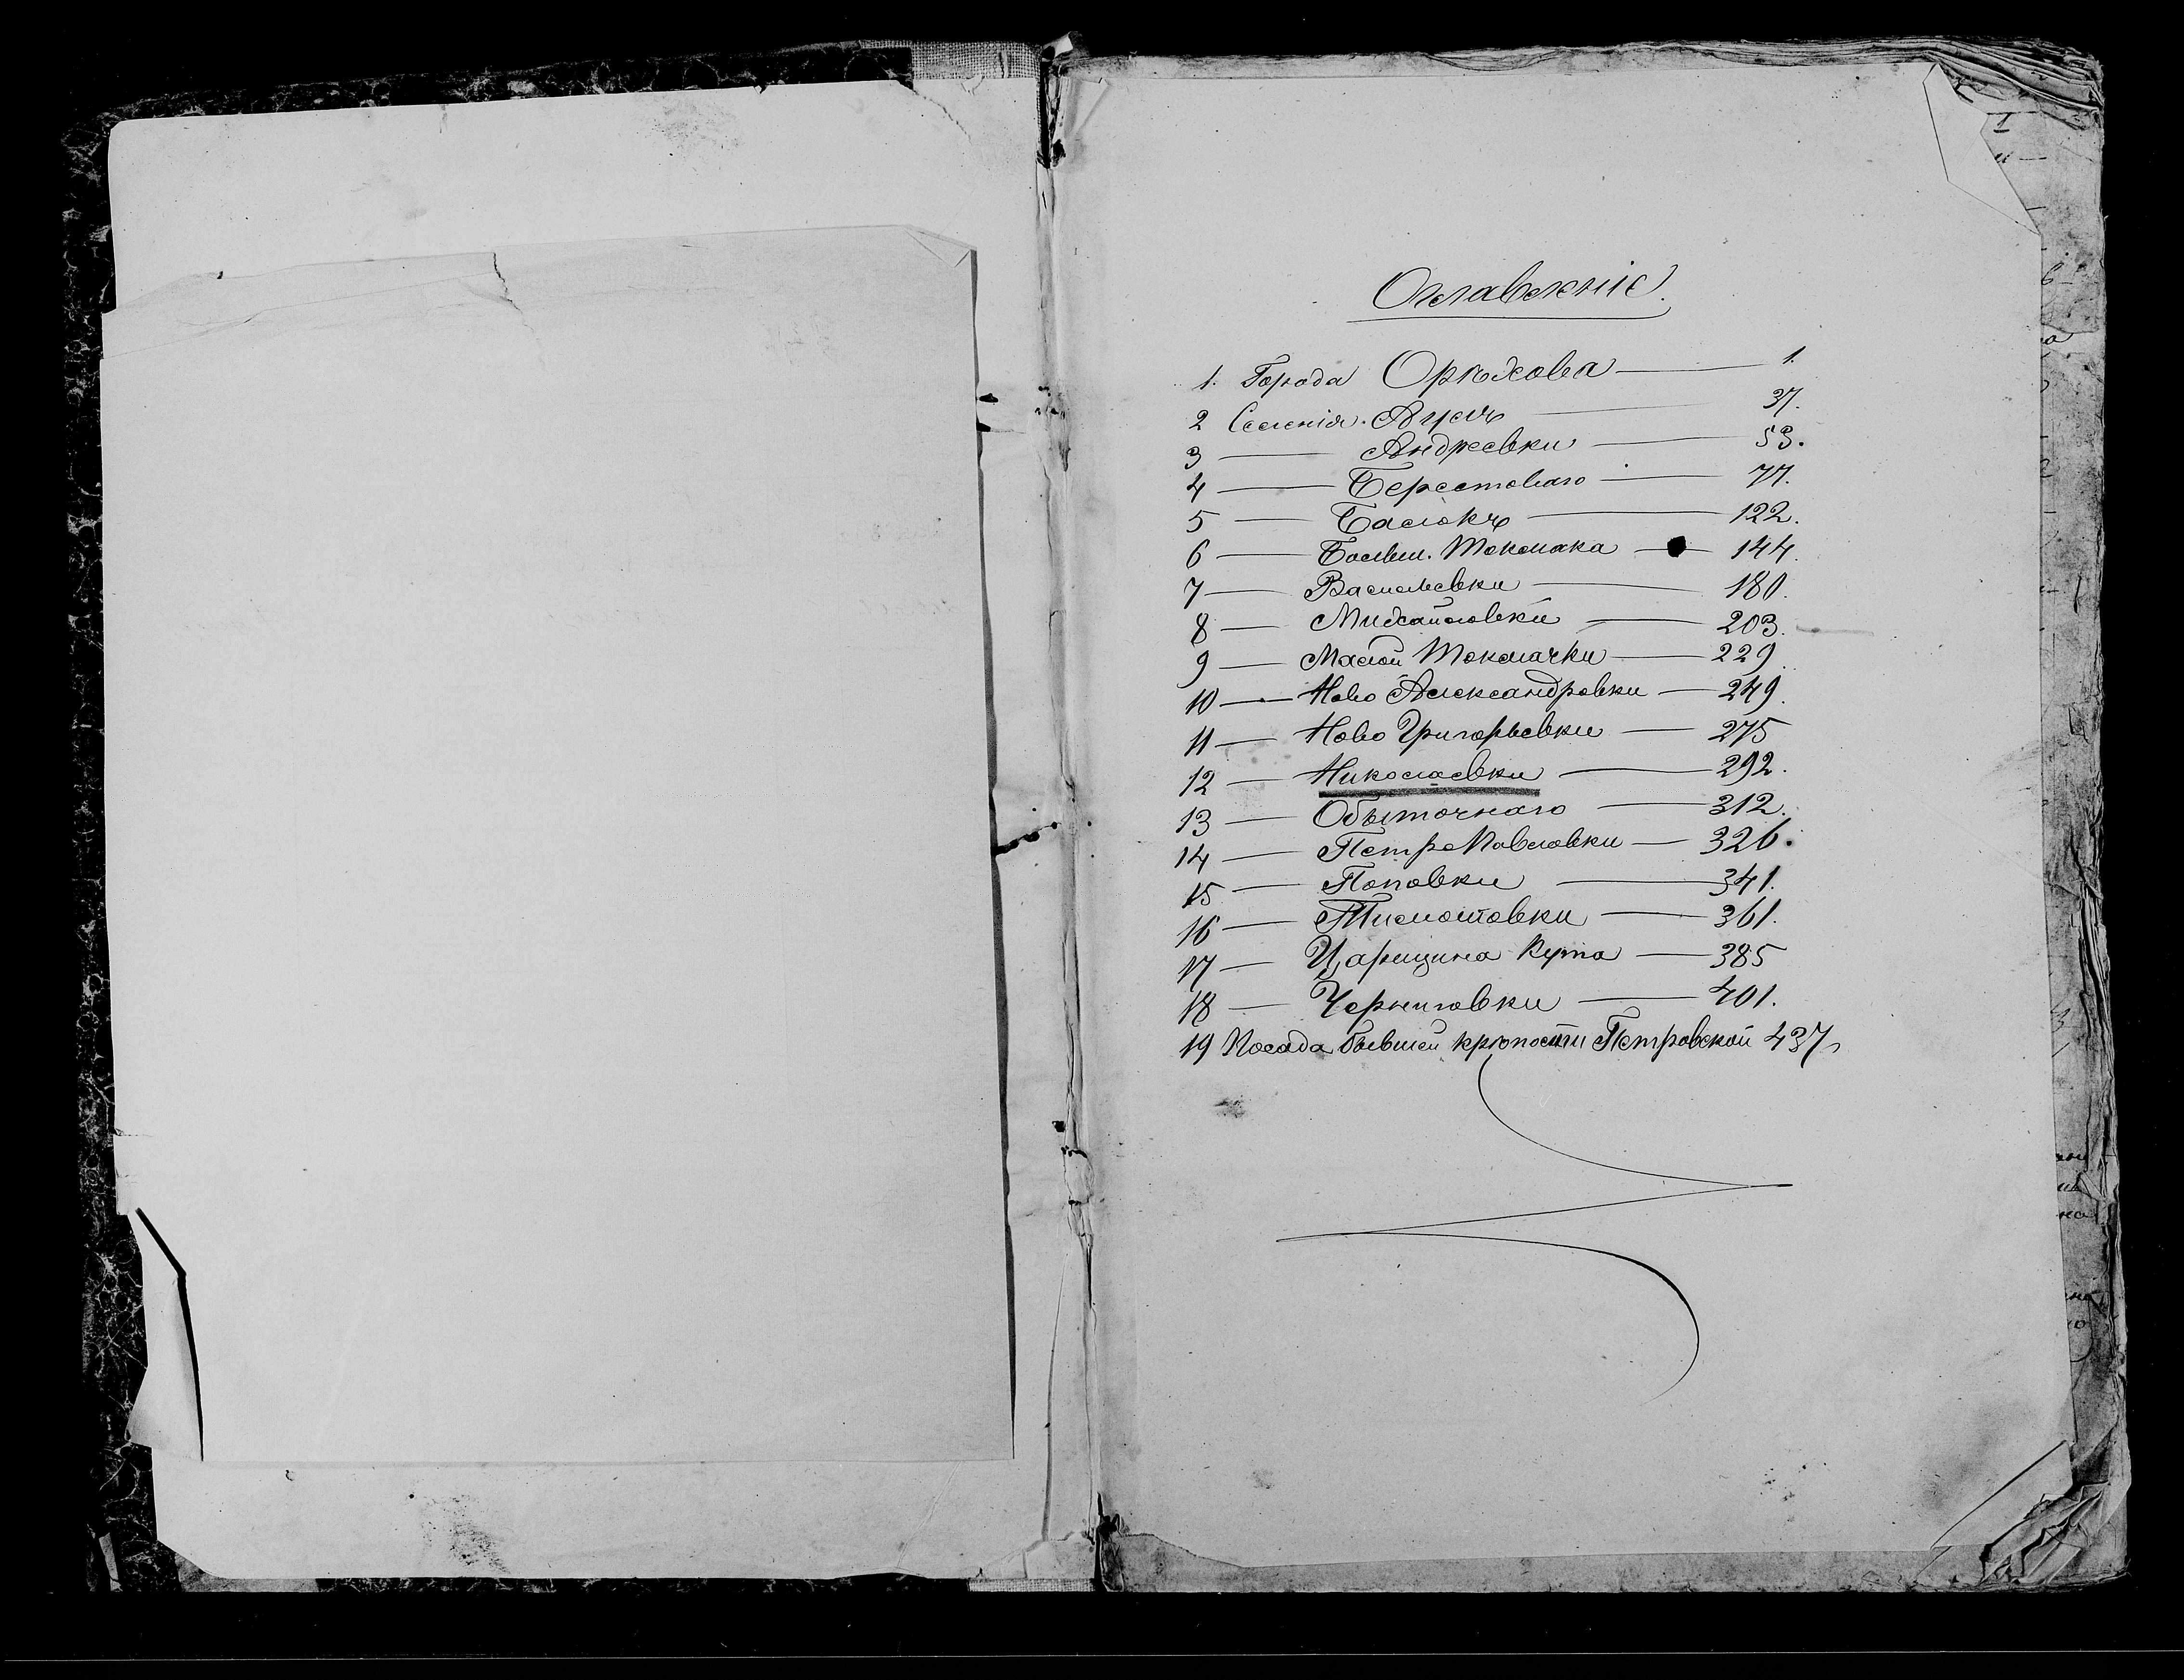 Оглавленіе.
1. Города Орѣхова — 1.
2 Селенія Агусъ — 37.
3 — Андреевки — 53.
4 — Берестоваго — 77.
5 — Балокъ — 122.
6 — Больш. Токмака — 144.
7 — Васильевки — 180.
8 — Михайловки — 203.
9 — Малой Токмачки — 229.
10 — Ново Александровки — 249.
11 — Ново Григорьевки — 275
12 — Николаевки — 292.
13 — Обыточнаго — 312.
14 — ПетроПавловки — 326.
15 — Поповки — 341.
16 — Тимошовки — 361.
17 — Царицына Кута — 385
18 — Черниговки — 401.
19 Посада бывшей крѣпости Петровской 437.